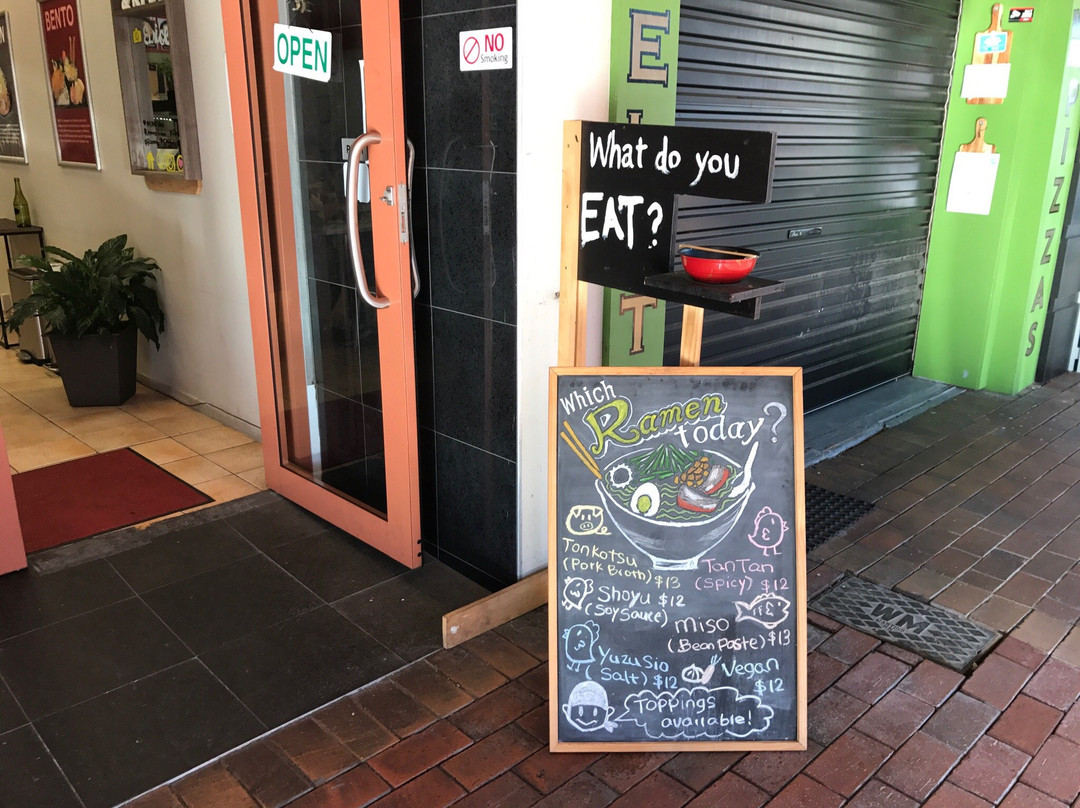 BENTO
OPEN
NO
Smoking
E
T
IZZAS
What do you
EAT?
Which
Ramen
today?
Tonkotsu
(Pork Broth) $13
TanTan
(Spicy) $12
Shoyu $12
(Soy Sauce)
Miso
(Bean Paste) $13
Yuzu Sio
(Salt) $12
Vegan
$12
Toppings
available!
WM